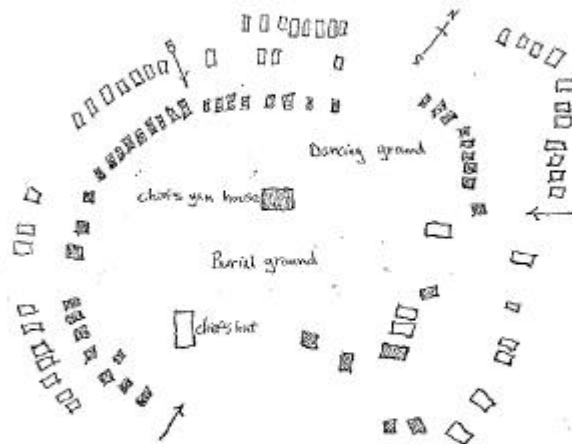 N
S
Dancing ground
chiefs yam house
Burial ground
chiefs hut